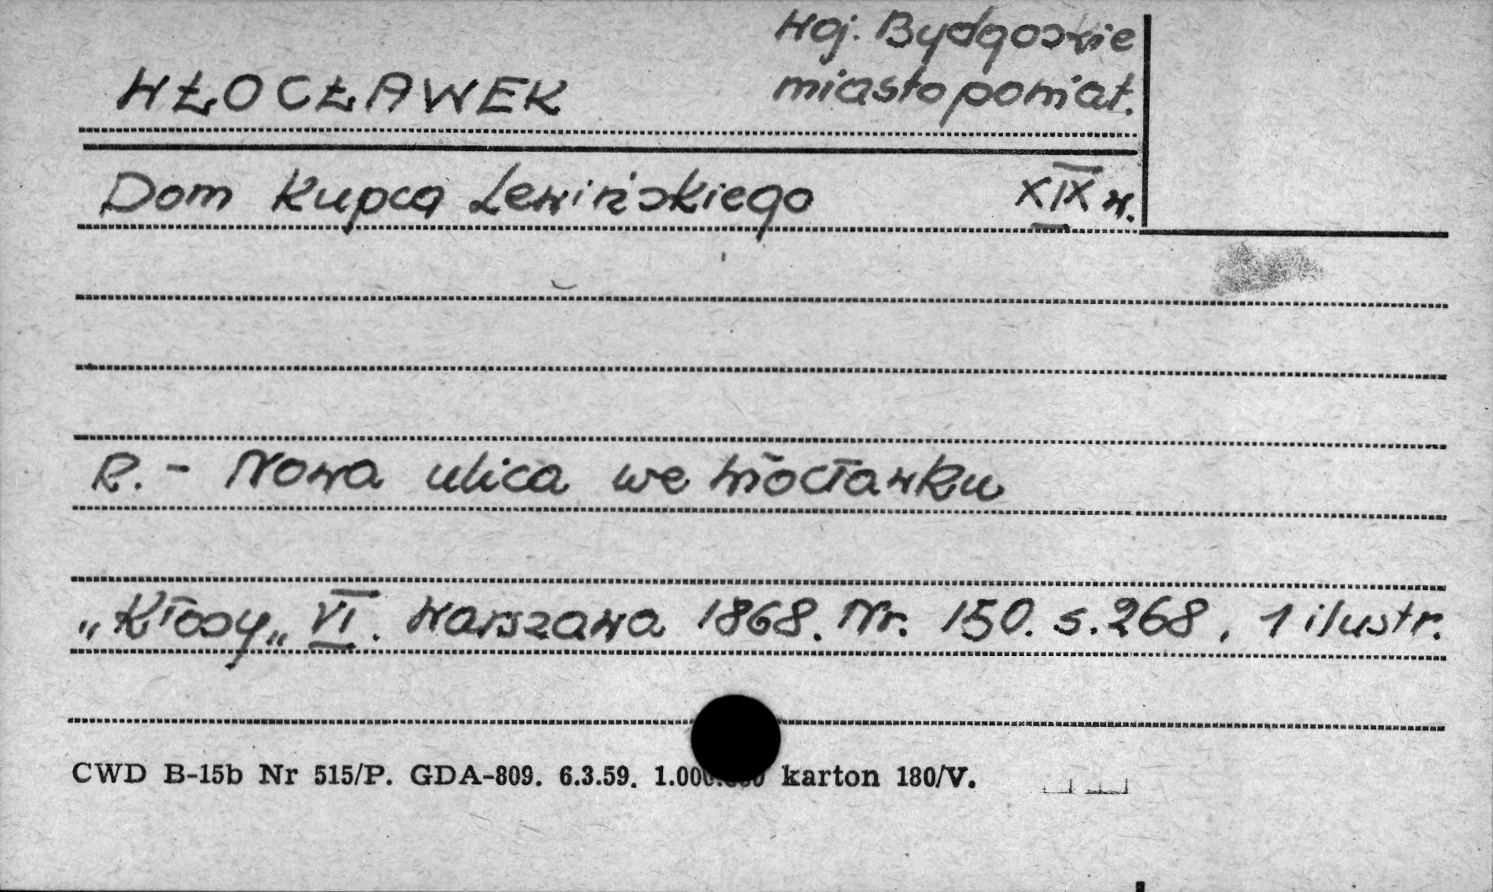 woj. Bydgoskie
WŁOCŁAWEK miasto powiat.
Dom kupca Lewińskiego XIX w.
R. - Nowa ulica we Włocławku
„Kłosy„ VI. Warszawa 1868. Nr. 150. s. 268, 1 ilustr.
CWD B-15b Nr 515/P. GDA-809. 6.3.59. karton 180/V.